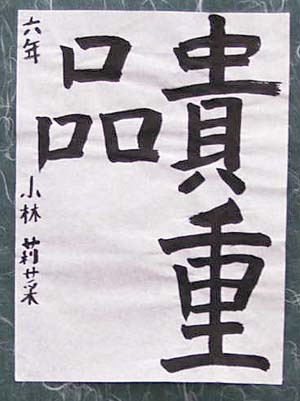 貴重
品
六年 小林 莉采